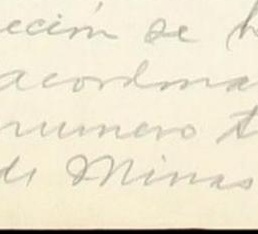 ección se h
acordona
numero t
de Minas